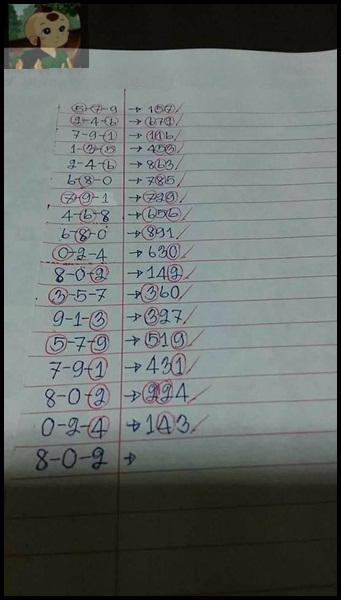 5-7-9 → 157
2-4-6 → 672
7-9-1 → 116
1-3-5 → 453
2-4-6 → 863
6-8-0 → 785
7-9-1 → 729
4-6-8 → 656
6-8-0 → 891
0-2-4 → 630
8-0-2 → 142
3-5-7 → 360
9-1-3 → 327
5-7-9 → 519
7-9-1 → 431
8-0-2 → 224
0-2-4 → 143
8-0-2 →